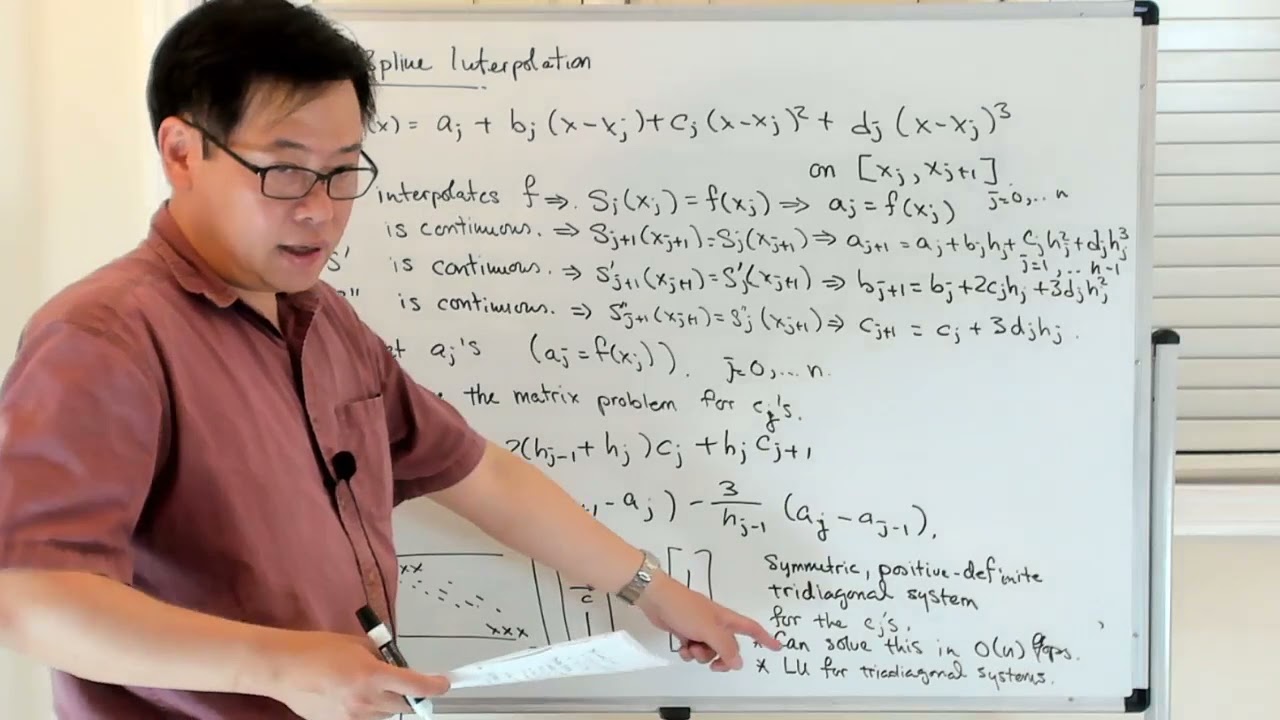 Spline Interpolation
(x) = aj + bj (x-xj) + cj (x-xj)² + dj (x-xj)³
on [xj, xj+1]
interpolates f ⇒ Sj(xj) = f(xj) ⇒ aj = f(xj) j=0,... n
is continuous. ⇒ Sj+1(xj+1) = Sj(xj+1) ⇒ aj+1 = aj + bjhj + cjhj² + djhj³
j=1, .. n-1
S' is continuous. ⇒ S'j+1(xj+1) = S'j(xj+1) ⇒ bj+1 = bj + 2cjhj + 3djhj²
" is continuous. ⇒ S"j+1(xj+1) = S"j(xj+1) ⇒ cj+1 = cj + 3djhj.
aj's (aj = f(xj)). j=0,... n.
the matrix problem for cj's.
2(hj-1 + hj)cj + hjcj+1
- aj) - 3/hj-1 (aj - aj-1),
xx
xxx
c
Symmetric, positive-definite
tridiagonal system
for the cj's.
* Can solve this in O(n) flops.
* LU for triadiagonal systems.